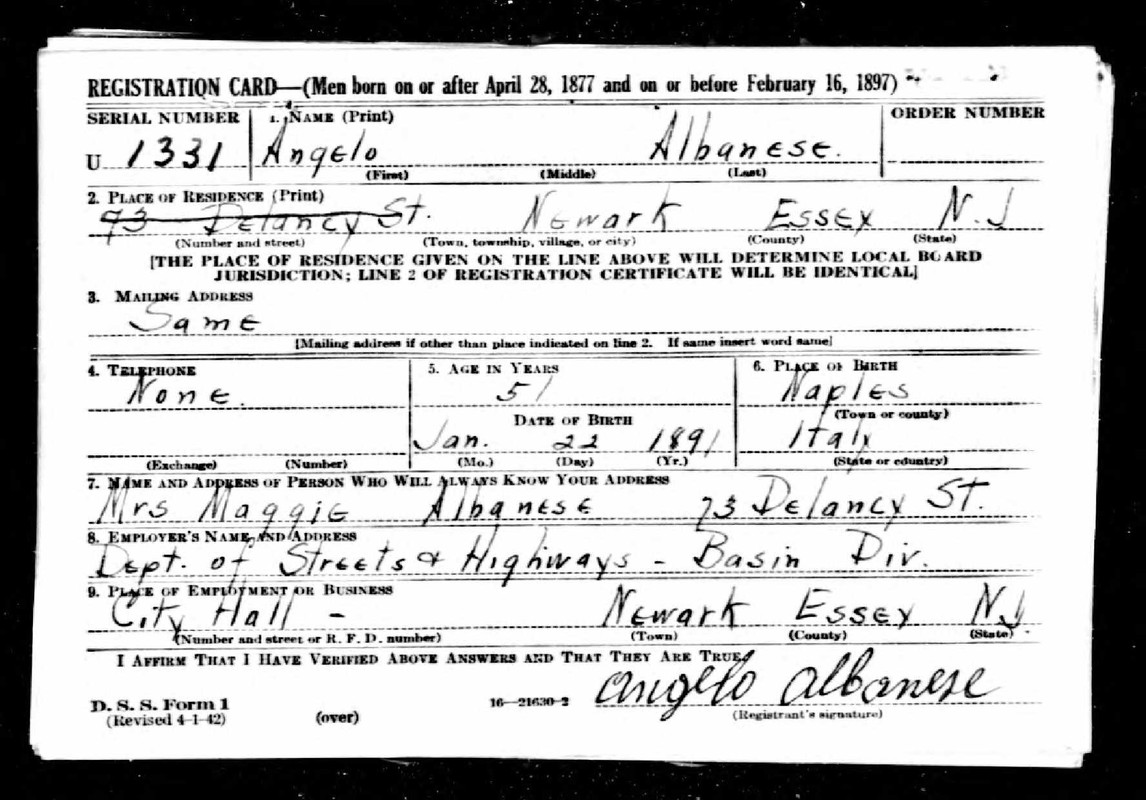 REGISTRATION CARD—(Men born on or after April 28, 1877 and on or before February 16, 1897)
SERIAL NUMBER 1. NAME (Print) ORDER NUMBER
U 1331 Angelo Albanese.
(First) (Middle) (Last)
2. PLACE OF RESIDENCE (Print)
73 Delancy St. Newark Essex N.J
(Number and street) (Town, township, village, or city) (County) (State)
[THE PLACE OF RESIDENCE GIVEN ON THE LINE ABOVE WILL DETERMINE LOCAL BOARD
JURISDICTION; LINE 2 OF REGISTRATION CERTIFICATE WILL BE IDENTICAL]
3. MAILING ADDRESS
Same
[Mailing address if other than place indicated on line 2. If same insert word same]
4. TELEPHONE 5. AGE IN YEARS 6. PLACE OF BIRTH
None. 51 Naples
DATE OF BIRTH (Town or county)
Jan. 22 1891 Italy
(Exchange) (Number) (Mo.) (Day) (Yr.) (State or country)
7. NAME AND ADDRESS OF PERSON WHO WILL ALWAYS KNOW YOUR ADDRESS
Mrs Maggie Albanese 73 Delancy St.
8. EMPLOYER'S NAME AND ADDRESS
Dept. of Streets & Highways - Basin Div.
9. PLACE OF EMPLOYMENT OR BUSINESS
City Hall - Newark Essex N.J.
(Number and street or R. F. D. number) (Town) (County) (State)
I AFFIRM THAT I HAVE VERIFIED ABOVE ANSWERS AND THAT THEY ARE TRUE.
Angelo Albanese
D. S. S. Form 1 16—21630-2 (Registrant's signature)
(Revised 4-1-42) (over)